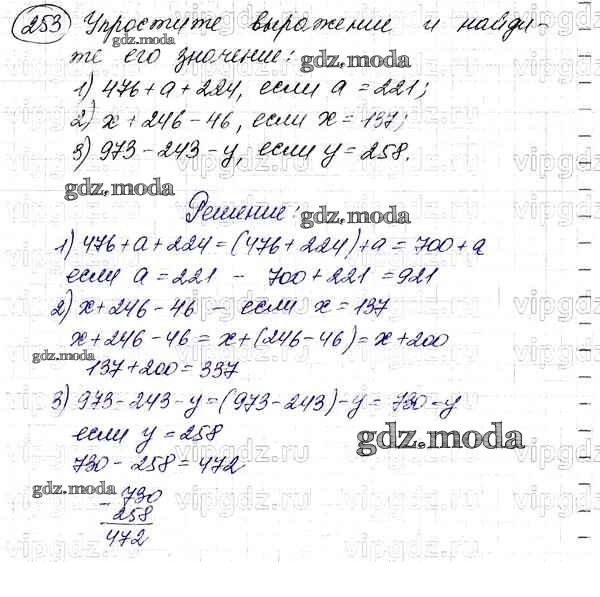 253 Упростите выражение и найди-
те его значение:
1) 476 + a + 224, если a = 221;
2) x + 246 - 46, если x = 137;
3) 973 - 243 - y, если y = 258.
gdz.moda
Решение:
1) 476 + a + 224 = (476 + 224) + a = 700 + a
если a = 221 - 700 + 221 = 921
2) x + 246 - 46 - если x = 137
x + 246 - 46 = x + (246 - 46) = x + 200
137 + 200 = 337
3) 973 - 243 - y = (973 - 243) - y = 730 - y
если y = 258
730 - 258 = 472
gdz.moda
- 730
258
472
vipgdz.ru